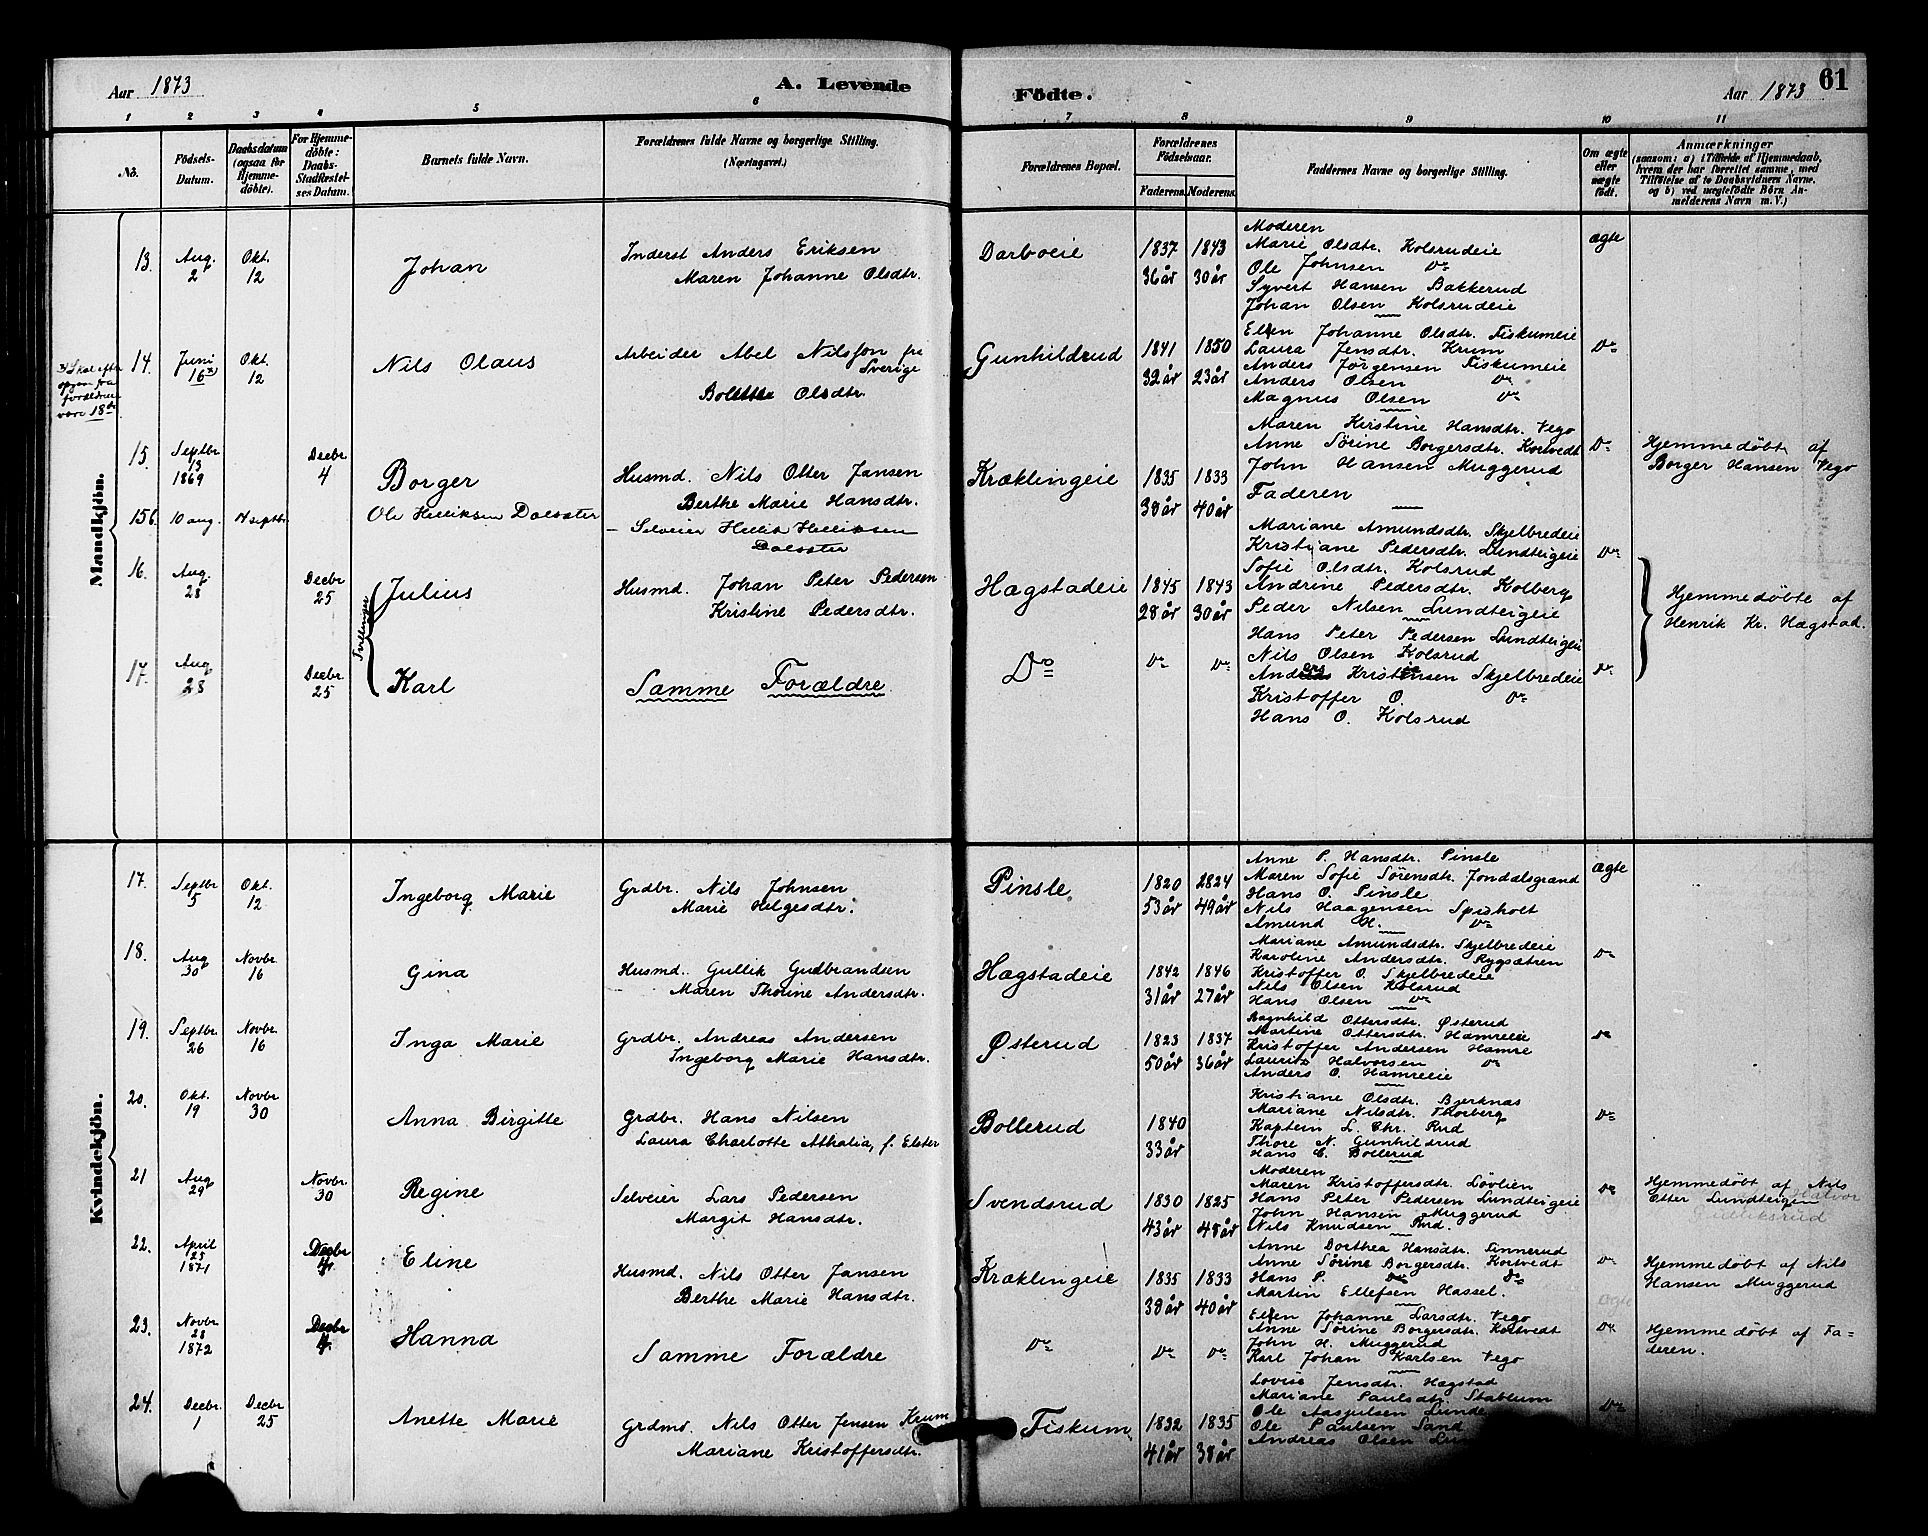 Aar 1873
A. Levende
Födte.
Aar 1873
61
1 2 3 4 5 6 7 8 9 10 11
No.
Födsels-
Datum.
Daabsdatum
(ogsaa for
Hjemme-
döbte).
For Hjemme-
döbte:
Daabs-
Stadfæstel-
ses Datum.
Barnets fulde Navn.
Forældrenes fulde Navne og borgerlige Stilling.
(Næringsvei.)
Forældrenes Bopæl.
Forældrenes
Födselsaar.
Faderens. Moderens.
Faddernes Navne og borgerlige Stilling.
Om ægte
eller
uægte
födt.
Anmærkninger
(saasom: a) i Tilfælde af Hjemmedaab,
hvem der har forrettet samme, med
Tilföielse af to Daabsvidners Navne,
og b) ved uægtefödte Börn An-
melderens Navn m. V.)
Mandkjön.
13. Aug. 2 Okt. 12 Johan
Inderst Anders Eriksen
Maren Johanne Olsdtr.
Darboeie 1837 1843
36 år 30 år
Moderen
Marie Olsdtr. Kolsrudeie
Ole Johnsen Do
Syvert Hansen Bakkerud
Johan Olsen Kolsrudeie
ægte
være 18de
14. Juni 16 Okt. 12 Nils Olaus
Arbeider Abel Nilsson fra
Sverige
Bolette Olsdtr.
Gunhildrud 1841 1850
32 år 23 år
Ellen Johanne Olsdtr. Fiskumeie
Laura Jensdtr. Krum
Anders Jörgensen Fiskumeie
Anders Olsen Do
Magnus Olsen Do
Do
15. Septbr. 13 1869 Decbr 4 Borger
Husmd. Nils Otter Jansen
Berthe Marie Hansdtr.
Kræklingeie 1835 1833
38 år 40 år
Maren Kirstine Hansdtr. Vego
Anne Sörine Borgersdtr. Kortvedt
John Hansen Muggerud
Faderen
Do
Hjemmedøbt af
Borger Hansen Vego
15b. 10 aug. 14 septbr. Ole Helliksen Dalsæter
Selveier Hellik Helliksen
Dalsæter
16. Aug. 28 Decbr 25 Julius
Tvillinger
Husmd. Johan Peter Pedersen
Kristine Pedersdtr.
Hægstadeie 1845 1843
28 år 30 år
Mariane Amundsdtr. Skjelbredeie
Kristiane Pedersdtr. Lundteigeie
Sofie Olsdtr. Kolsrud
Andrine Pedersdtr. Kolberg
Peder Nilsen Lundteigeie
Do
Hjemmedöbte af
Henrik Kr. Hægstad.
17. Aug 28 Decbr. 25 Karl
Samme Forældre
Do Do Do
Hans Peter Pedersen Lundteigeie
Nils Olsen Kolsrud
Anders Kristensen Skjelbredeie
Kristoffer O. Do
Hans O. Kolsrud
Do
Kvindekjön.
17. Septbr 5 Okt. 12 Ingeborg Marie
Grdbr. Nils Johnsen
Marie Helgesdtr.
Pinsle 1820 2824
53 år 49 år
Anne P. Hansdtr. Pinsle
Maren Sofie Sörensdtr. Jondalsgrand
Hans O. Pinsle
Nils Haagensen Spisholt
Amund H. Do
ægte
18. Aug 30 Novbr. 16 Gina
Husmd. Gullik Gudbrandsen
Maren Thorine Andersdtr.
Hægstadeie 1842 1846
31 år 27 år
Mariane Amundsdtr. Skjelbredeie
Karoline Andersdtr. Rygsætren
Kristoffer O. Skjelbredeie
Nils Olsen Kolsrud
Hans Olsen Do
Do
19. Septbr. 26 Novbr. 16 Inga Marie
Grdbr. Andreas Andersen
Ingeborg Marie Hansdtr.
Østerud 1823 1837
50 år 36 år
Ragnhild Ottersdtr. Østerud
Martine Ottersdtr. Hamreeie
Kristoffer Andersen Hamre
Lauritz Halvorsen Do
Anders O. Hamreeie
Do
20. Okt. 19 Novbr 30 Anna Birgitte
Grdbr. Hans Nilsen
Laura Charlotte Athalia, f. Elster
Bollerud 1840
33 år
Kristiane Olsdtr. Bjerknæs
Mariane Nilsdtr. Thorberg
Kaptein L. Chr. Rud
Thore N. Gunhildrud
Hans C. Bollerud
Do
21 Aug 29 Novbr. 30 Regine
Selveier Lars Pedersen
Margit Hansdtr.
Svendsrud 1830 1825
43 år 48 år
Moderen
Maren Kristoffersdtr. Lövlien
Hans Peter Pedersen Lundteigeie
John Hansen Muggerud
Nils Knudsen Rud.
Do
Hjemmedöbt af Nils
Otter Lundteigen
22. April 23 1871 Decbr 4 Eline
Husmd. Nils Otter Jansen
Berthe Marie Hansdtr.
Kræklingeie 1835 1833
38 år 40 år
Anne Dorthea Hansdtr. Finnerud
Anne Sörine Borgersdtr. Kortvedt
Hans P. Do Do
Martin Ellefsen Hassel.
Do
Hjemmedöbt af Nils
Hansen Muggerud
23. Novbr 28 1872 Decbr 4 Hanna
Samme Forældre
Do Do Do
Ellen Johanne Larsdtr. Vego
Anne Sörine Borgersdtr. Kortvedt
John H. Muggerud
Karl Johan Karlsen Vego
Do
Hjemmedöbt af Fa-
deren.
24. Decbr. 1 Decbr 25 Anette Marie
Grdmd. Nils Otter Jensen Krum
Mariane Kristoffersdtr.
Fiskum 1832 1835
41 år 38 år
Lovise Jensdtr. Hægstad
Mariane Paulsdtr. Stablum
Ole Aasjulsen Lunde
Ole Paulsen Sand
Andreas Olsen
Do